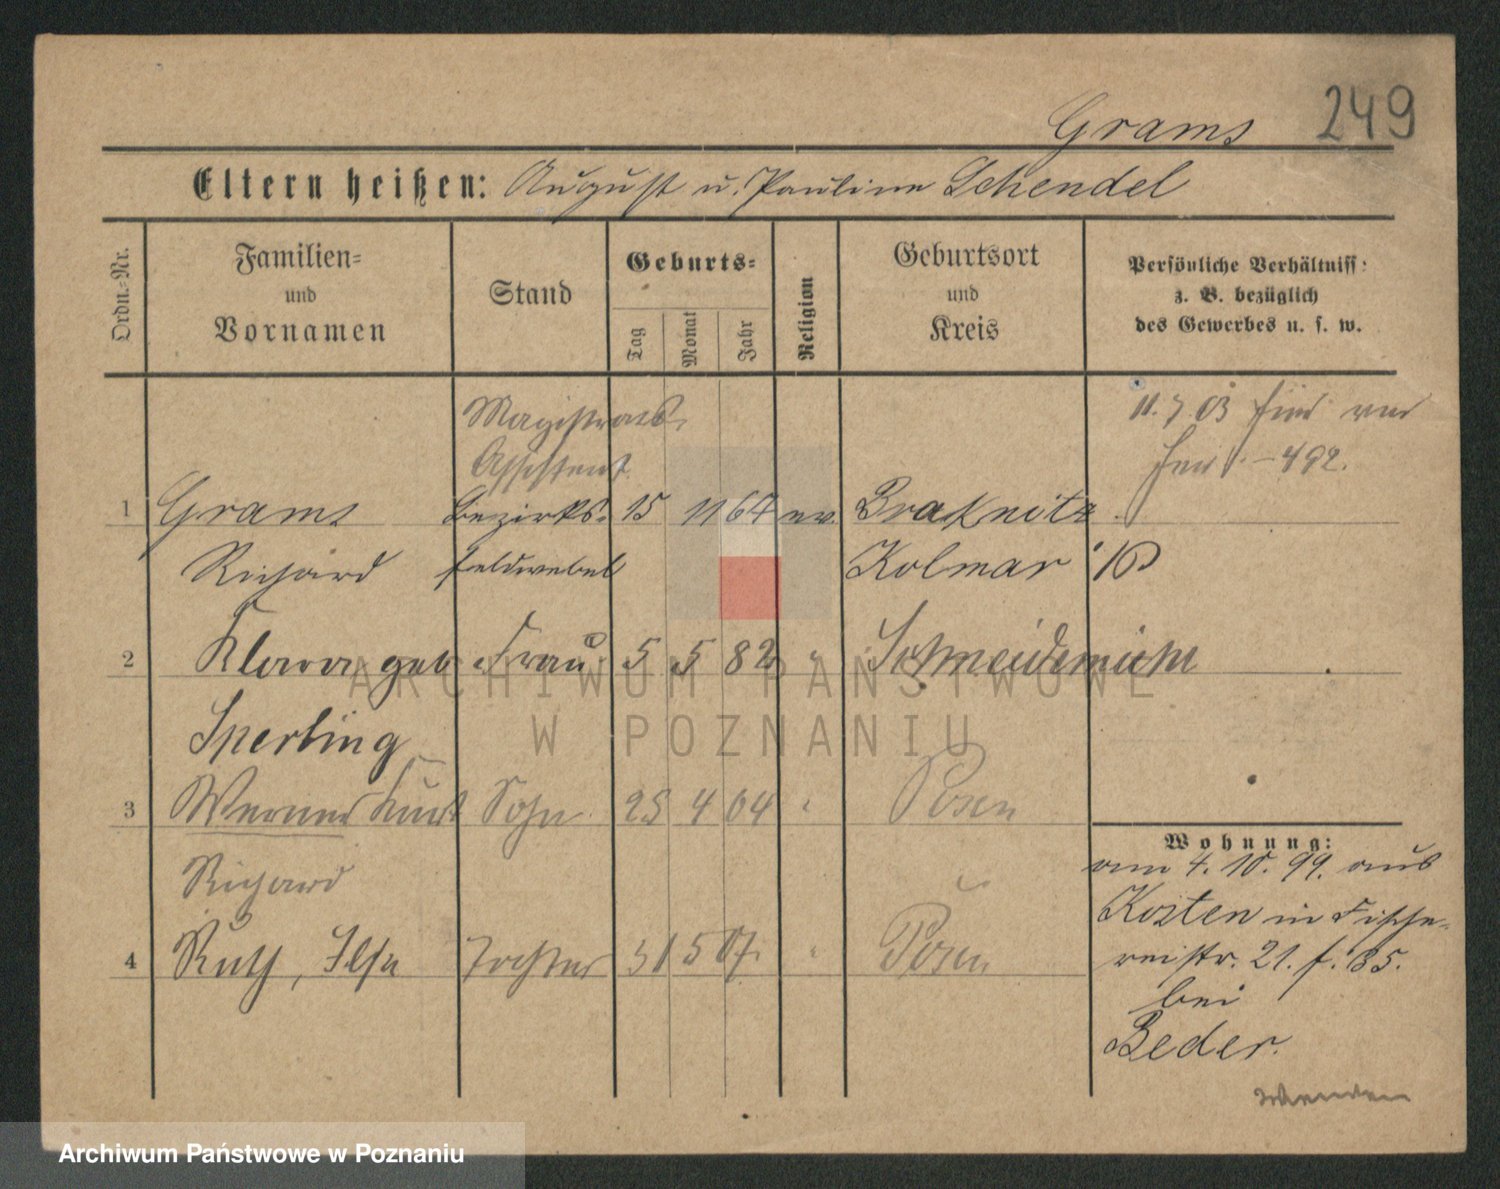 249
Grams
Eltern heißen: August u. Pauline Schendel
Ordn.-Nr.
Familien-
und
Vornamen
Stand
Geburts-
Tag
Monat
Jahr
Religion
Geburtsort
und
Kreis
Persönliche Verhältniss:
z. B. bezüglich
des Gewerbes u. s. w.
Magistrats
Assistent
11. 7 03
492.
1 Grams Bezirks- 15 11 67 ev. Braknitz
Richard feldwebel Kolmar
2 Klara geb Frau 5 5 82 " Schneidemühl
Sperling
3 Werner Kurt Sohn 25 4 04 " Posen
Richard
4 Ruth, Ilse Tochter 31 5 07 " Posen
Wohnung:
am 4. 10. 99. aus
Kosten in Fische-
reistr. 21.
bei
Beder.
wenden
ARCHIWUM PAŃSTWOWE
W POZNANIU
Archiwum Państwowe w Poznaniu